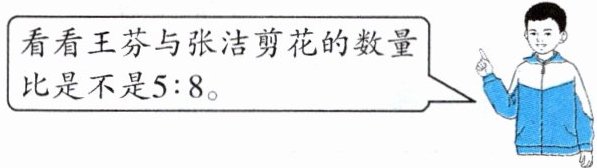 看看王芬与张洁剪花的数量
比是不是5:8。